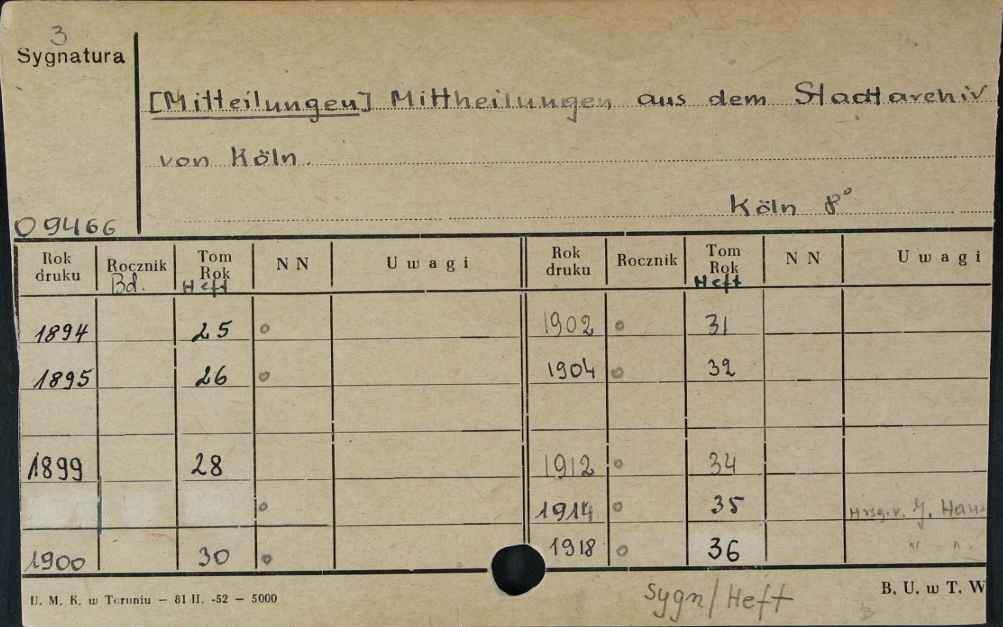 3
Sygnatura
[Mitteilungen] Mittheilungen aus dem Stadtarchiv
von Köln.
Köln 8°
09466
Rok druku Rocznik Bd. Tom Rok Heft NN Uwagi Rok druku Rocznik Tom Rok Heft NN Uwagi
1894 25 1902 31
1895 26 1904 32
1899 28 1912 34
1914 35 Hrsg. v. J.
1900 30 1918 36 " "
U. M. K. w Toruniu — 81 II. -52 — 5000
Sygn/Heft
B. U. w T. W